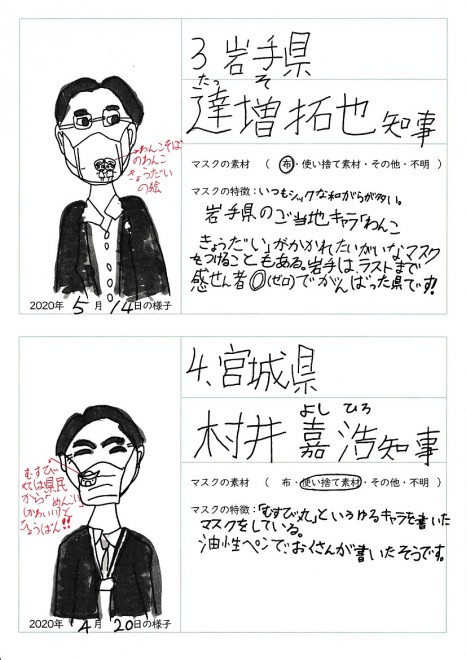 3 岩手県
たっ そ
達増拓也知事
マスクの素材 ( 布・使い捨て素材・その他・不明 )
マスクの特徴:いつもシックな和がらが多い。
岩手県のご当地キャラ「わんこ
きょうだい」がかかれたいがいなマスク
をつけることもある。岩手は、ラストまで
感せん者0(ゼロ)でがんばった県です!
わんこそば
のわんこ
きょうだい
の絵
2020年 5 月 14日の様子
4.宮城県
よし ひろ
村井嘉浩知事
マスクの素材 ( 布・使い捨て素材・その他・不明 )
マスクの特徴:「むすび丸」というゆるキャラを書いた
マスクをしている。
油性ペンでおくさんが書いたそうです。
むすび
丸は県民
から「めんこい
(かわいい)」と
こうひょうばん!!
2020年 4 月 20日の様子